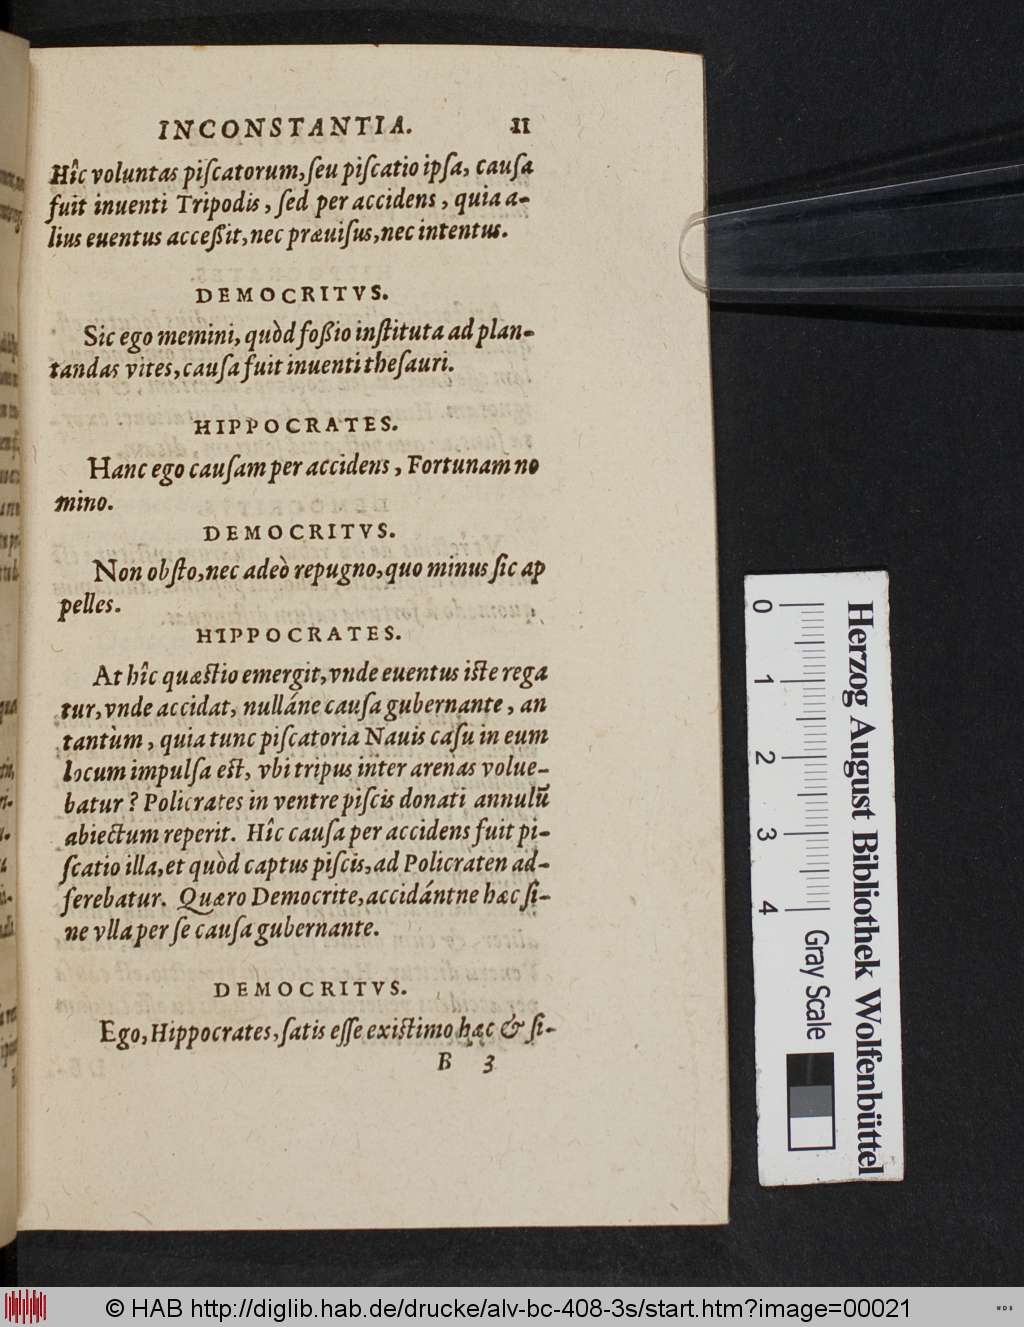 INCONSTANTIA. 11
Hîc voluntas piſcatorum, ſeu piſcatio ipſa, cauſa
fuit inuenti Tripodis, ſed per accidens, quia a-
lius euentus acceßit, nec præuiſus, nec intentus.
DEMOCRITVS.
Sic ego memini, quòd foßio inſtituta ad plan-
tandas vites, cauſa fuit inuenti theſauri.
HIPPOCRATES.
Hanc ego cauſam per accidens, Fortunam no
mino.
DEMOCRITVS.
Non obſto, nec adeò repugno, quo minus ſic ap
pelles.
HIPPOCRATES.
At hîc quæſtio emergit, vnde euentus iſte rega
tur, vnde accidat, nulláne cauſa gubernante, an
tantùm, quia tunc piſcatoria Nauis caſu in eum
locum impulſa eſt, vbi tripus inter arenas volue-
batur? Policrates in ventre piſcis donati annulū
abiectum reperit. Hîc cauſa per accidens fuit pi-
ſcatio illa, et quòd captus piſcis, ad Policraten ad-
ferebatur. Quæro Democrite, accidántne hæc ſi-
ne vlla per ſe cauſa gubernante.
DEMOCRITVS.
Ego, Hippocrates, ſatis eſſe exiſtimo hæc & ſi-
B 3
Herzog August Bibliothek Wolfenbüttel
0 1 2 3 4 Gray Scale
© HAB http://diglib.hab.de/drucke/alv-bc-408-3s/start.htm?image=00021